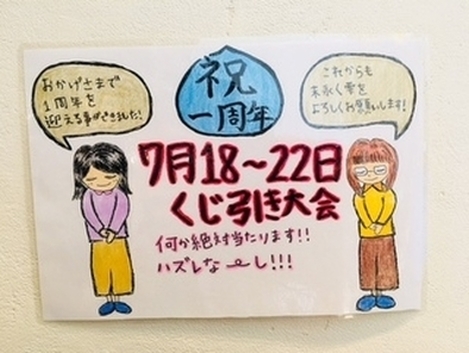 おかげさまで
1周年を
迎える事ができました!
祝
一周年
これからも
末永く雫を
よろしくお願いします!
7月18~22日
くじ引き大会
何か絶対当たります!!
ハズレなーし!!!